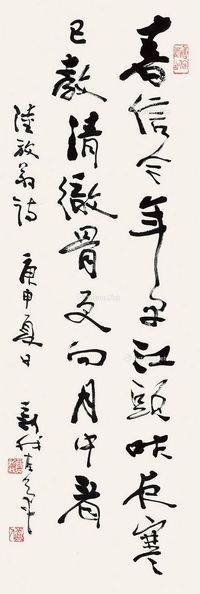 春信今年早江頭昨夜寒
已教清徹骨更向月中看
陸放翁詩 庚申夏日 新我左筆